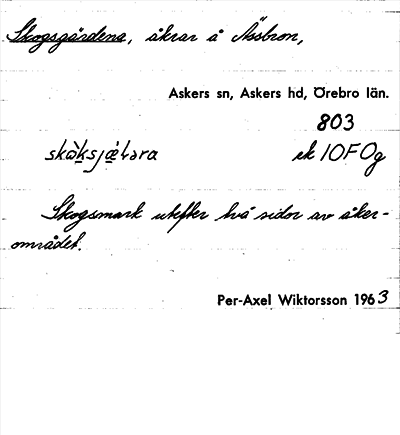 Skogsgärdena, åkrar å Åsbron,
Askers sn, Askers hd, Örebro län.
803
skὼksjæ̀ƚəra ek 10F0g
Skogsmark utefter två sidor av åker-
området.
Per-Axel Wiktorsson 1963